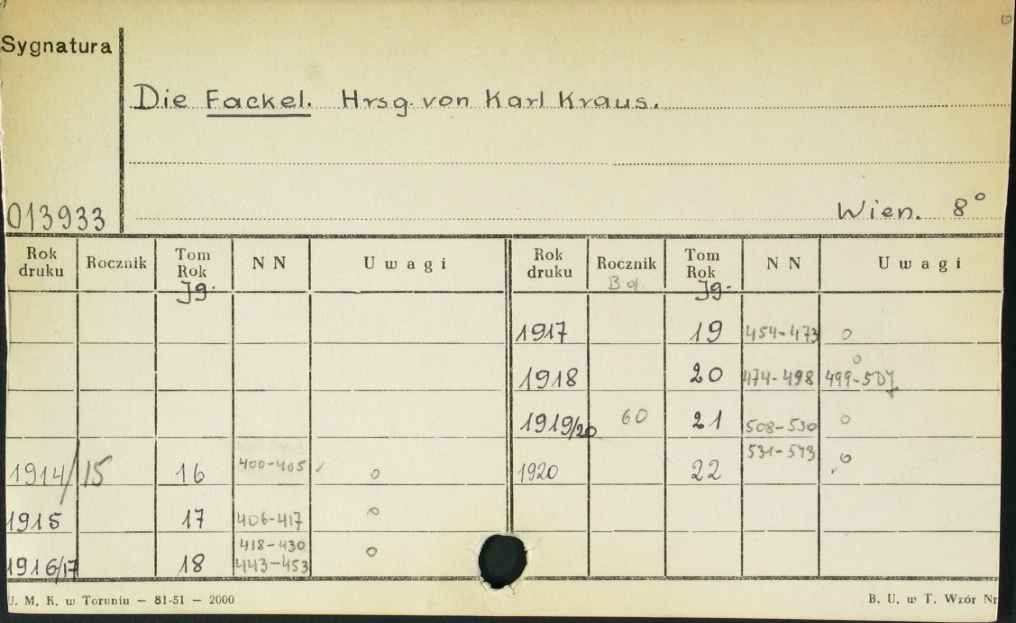 Sygnatura
Die Fackel. Hrsg. von Karl Kraus.
013933
Wien. 8°
Rok druku Rocznik Tom Rok Jg. N N Uwagi Rok druku Rocznik Bd. Tom Rok Jg. N N Uwagi
1917 19 454-473 o
1918 20 474-498 499-507 o
1919/20 60 21 508-530 o
1914/15 16 400-405 o 1920 22 531-543 o
1915 17 406-417 o
1916/17 18 418-430 443-453 o
U. M. K. w Toruniu — 81-51 — 2000
B. U. w T. Wzór Nr